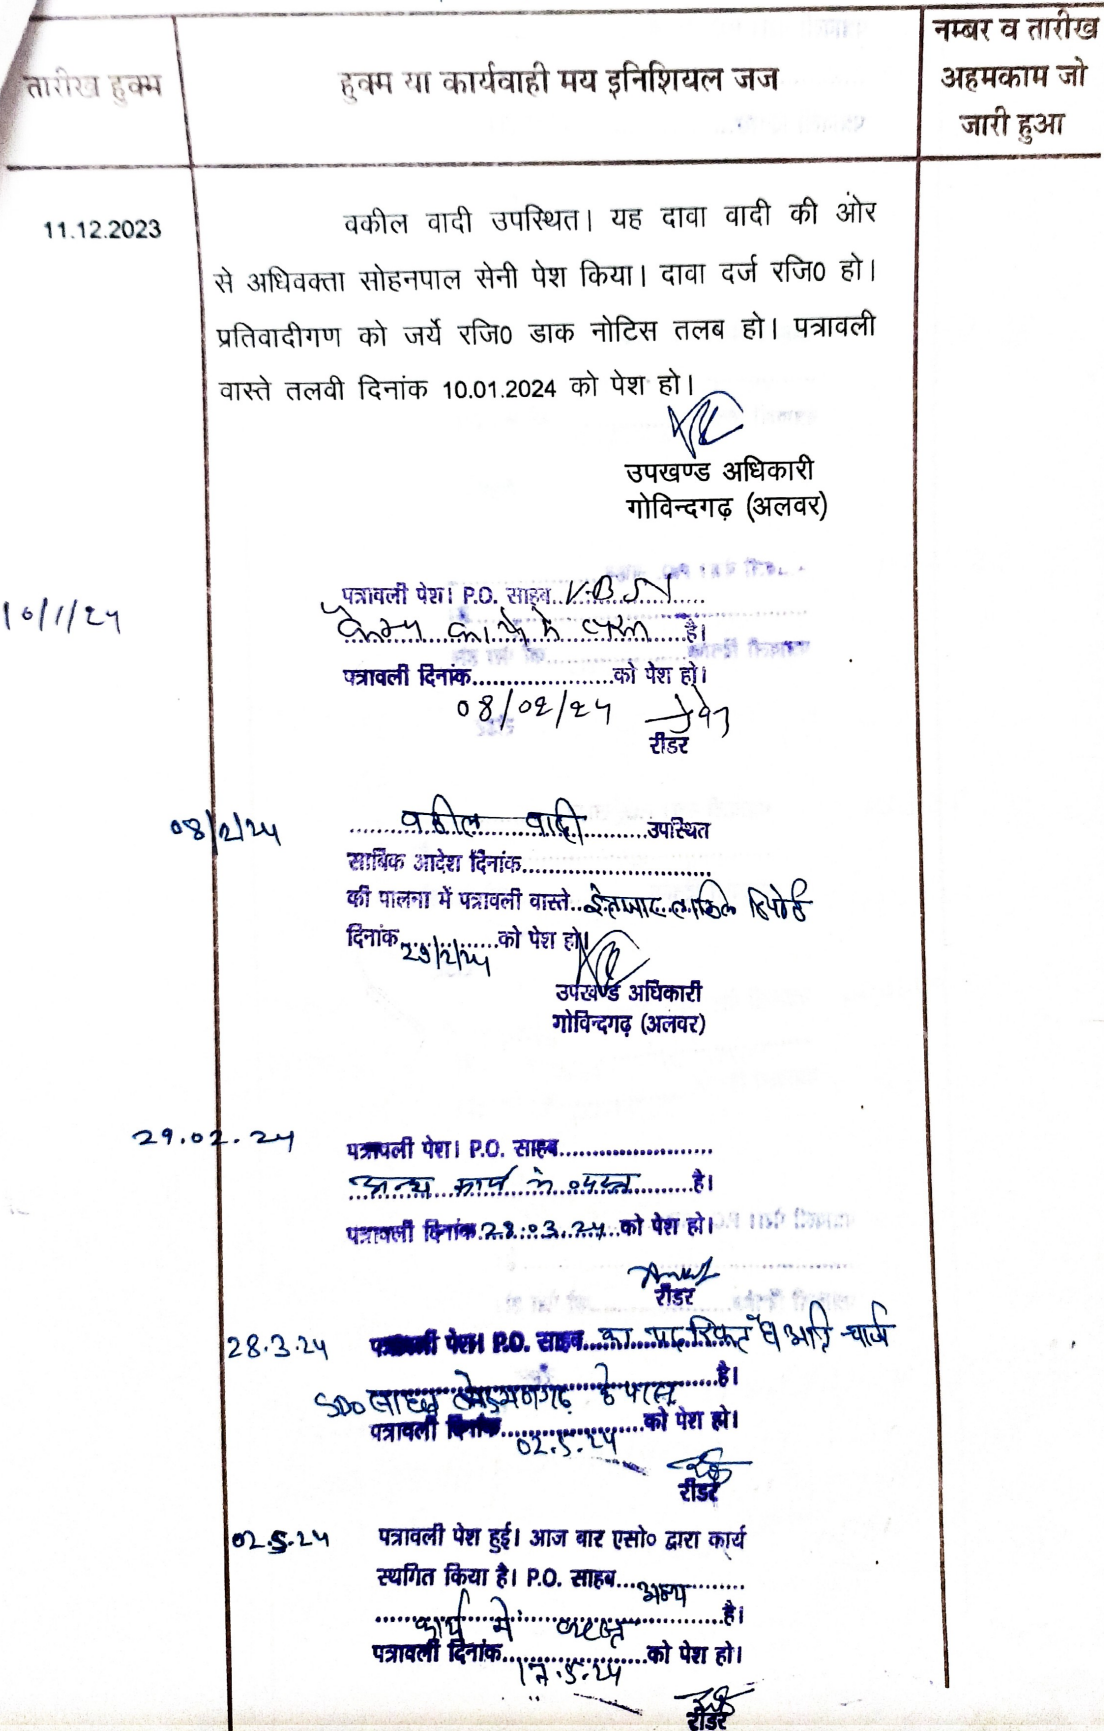 तारीख हुक्म
हुक्म या कार्यवाही मय इनिशियल जज
नम्बर व तारीख
अहमकाम जो
जारी हुआ
11.12.2023
वकील वादी उपस्थित। यह दावा वादी की ओर
से अधिवक्ता सोहनपाल सेनी पेश किया। दावा दर्ज रजि0 हो।
प्रतिवादीगण को जर्ये रजि0 डाक नोटिस तलब हो। पत्रावली
वास्ते तलवी दिनांक 10.01.2024 को पेश हो।
उपखण्ड अधिकारी
गोविन्दगढ़ (अलवर)
10/1/24
पत्रावली पेश। P.O. साहब V.B.S.Y
कैम्प कार्य में व्यस्त है।
पत्रावली दिनांक.....................को पेश हो।
08/02/24
रीडर
08/2/24
वकील वादी उपस्थित
साबिक आदेश दिनांक............................
की पालना में पत्रावली वास्ते.. इन्तजार तामिल रिपोर्ट
दिनांक...............को पेश हो।
29/2/24
उपखण्ड अधिकारी
गोविन्दगढ़ (अलवर)
29.02.24
पत्रावली पेश। P.O. साहब.......................
अन्य कार्य में व्यस्त है।
पत्रावली दिनांक 28.03.24 को पेश हो।
रीडर
28.3.24
पत्रावली पेश। P.O. साहब का पद रिक्त है अति चार्ज
है।
SDO साहब लक्ष्मणगढ़ के पास
पत्रावली दिनांक.....................को पेश हो।
02.5.24
रीडर
02.5.24
पत्रावली पेश हुई। आज बार एसो० द्वारा कार्य
स्थगित किया है। P.O. साहब...अन्य
कार्य में व्यस्त है।
पत्रावली दिनांक.....................को पेश हो।
17.5.24
रीडर